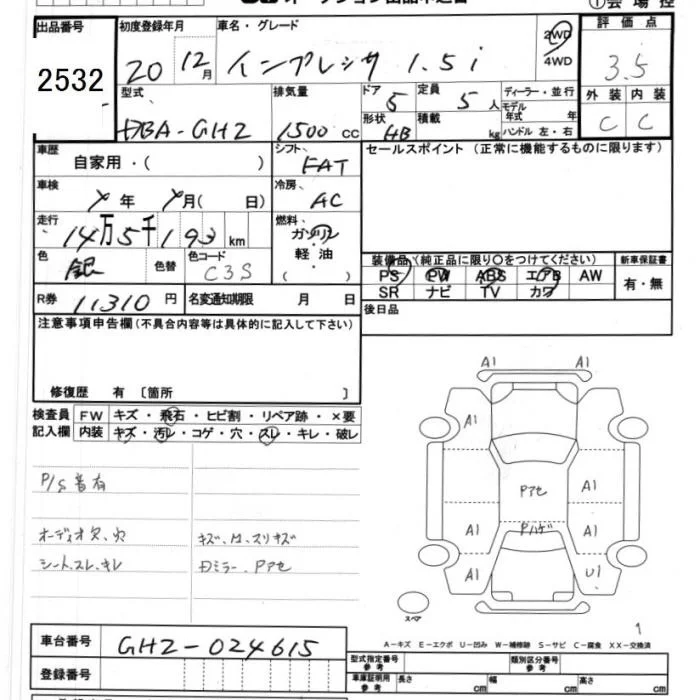 ①会場控
出品番号
2532
初度登録年月
20 12月
車名・グレード
インプレッサ 1.5i
2WD
4WD
評価点
3.5
外装 内装
C C
型式
DBA-GH2
排気量
1500 cc
ドア 5
定員 5 人
形状 HB
積載 kg
ディーラー・並行
モデル年式 年
ハンドル 左・右
車歴
自家用・( )
シフト
FAT
セールスポイント (正常に機能するものに限ります)
車検
年 月( 日)
冷房
AC
走行
14万5千193km
燃料
ガソリン
軽油
( )
色
銀
色替
色コード
C3S
装備品 (純正品に限り○をつけてください)
PS PW ABS エアB AW
SR ナビ TV カワ
新車保証書
有・無
R券 11310 円
名変通知期限 月 日
後日品
注意事項申告欄(不具合内容等は具体的に記入して下さい)
修復歴 有 〔箇所 〕
検査員記入欄
FW キズ・飛石・ヒビ割・リペア跡・×要
内装 キズ・汚レ・コゲ・穴・スレ・キレ・破レ
P/S音有
オーディオ欠、穴
シート、スレ、キレ
キズ、凹、スリキズ
Dミラー、Pアセ
A1 A1
A1 A1
Pアセ A1
A1 Pハゲ A1
A1 U1
スペア
A-キズ E-エクボ U-凹み W-補修跡 S-サビ C-腐食 XX-交換済
車台番号
GH2-024615
登録番号
型式指定番号 参考
類別区分番号 参考
車庫証明用 参考
長さ cm 幅 cm 高さ cm